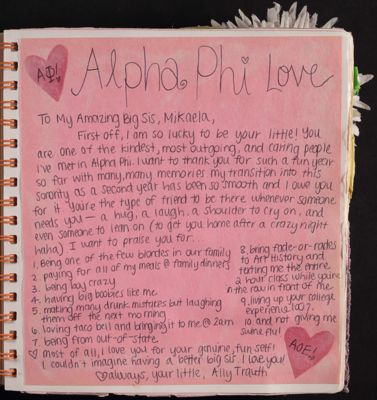 AΦ!
Alpha Phi Love
To My Amazing Big Sis, Mikaela,
First off, I am so lucky to be your little! You
are one of the kindest, most outgoing, and caring people
I've met in Alpha Phi. I want to thank you for such a fun year
so far with many, many memories my transition into this
sorority as a second year has been so smooth and I owe you
for it. You're the type of friend to be there whenever someone
needs you — a hug, a laugh, a shoulder to cry on, and
even someone to lean on (to get you home after a crazy night
haha) I want to praise you for...
1. being one of the few blondes in our family
2. paying for all of my meals @ family dinners
3. being boy crazy
4. having big boobies like me
5. making many drunk mistakes but laughing
them off the next morning
6. loving taco bell and bringing it to me @ 2am
7. being from out-of-state
8. being fade-or-rades
to Art History and
texting me the entire
2 hour class while you're
in the row in front of me
9. living up your college
experience 100%.
10. and not giving me
swine flu!
♡ most of all, I love you for your genuine, fun self!
I couldn't imagine having a better big sis. I love you!
♡ always, your little, Ally Trauth
AOE!